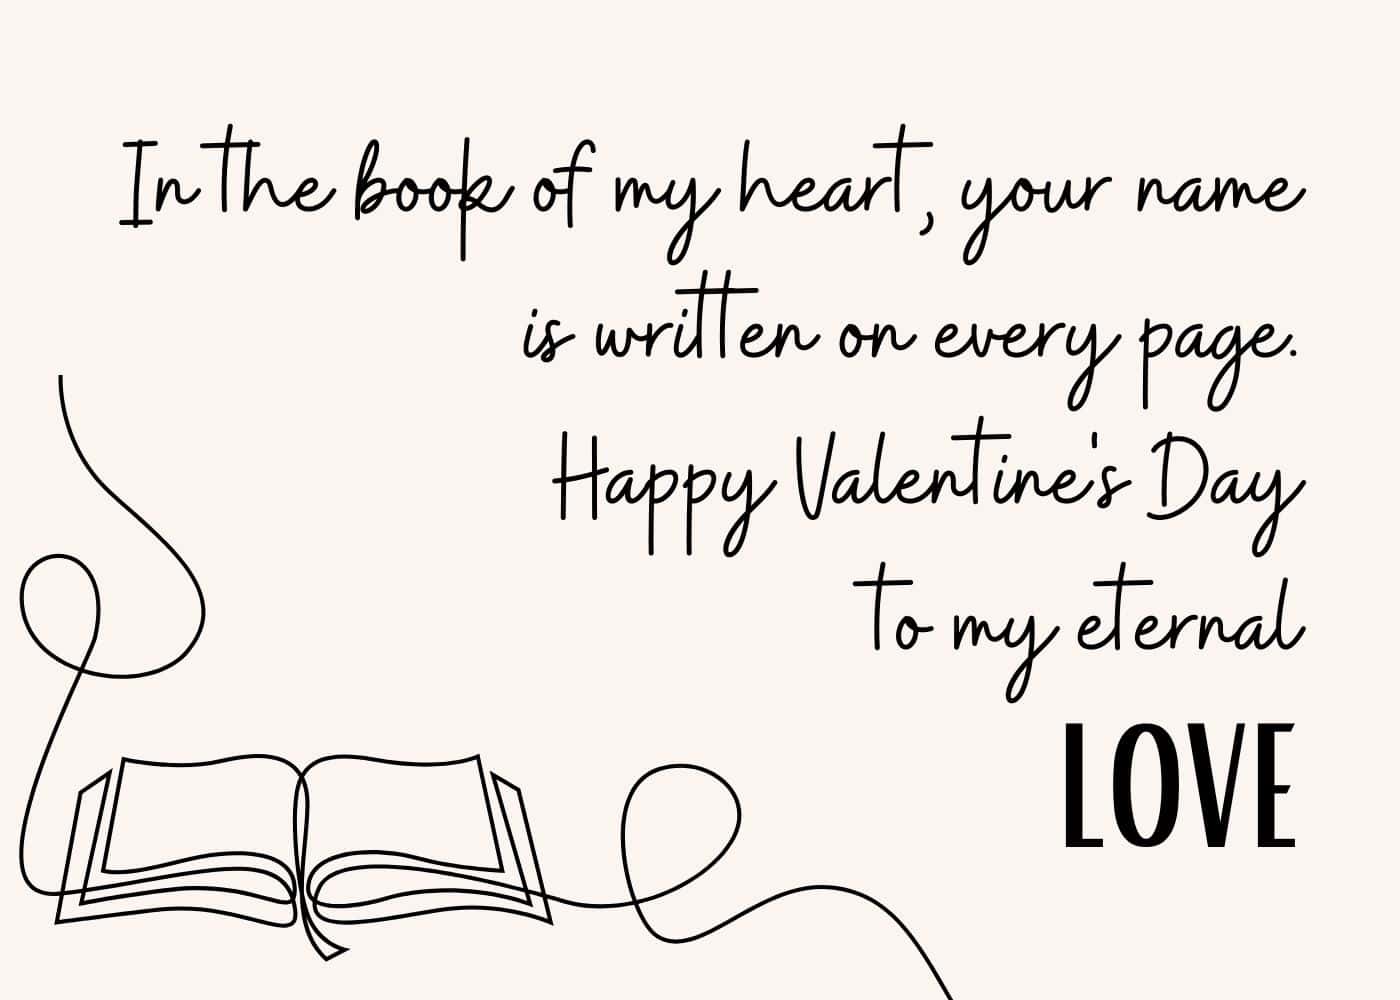 In the book of my heart, your name
is written on every page.
Happy Valentine's Day
to my eternal
LOVE